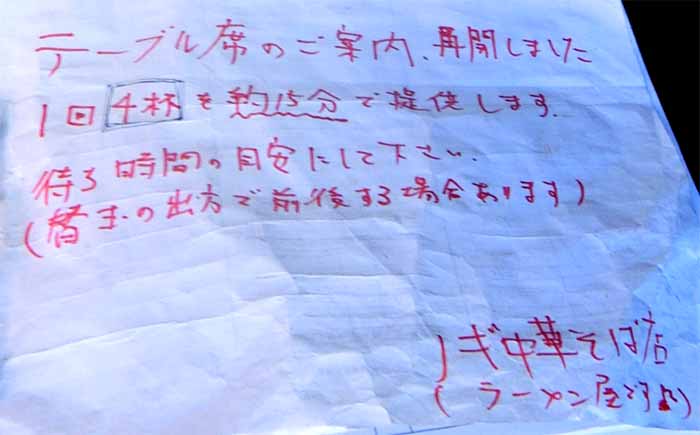 テーブル席のご案内、再開しました
1回 4杯 を約15分で提供します.
待ち時間の目安にして下さい.
(替玉の出方で前後する場合あります)
ノギ中華そば店
(ラーメン屋です)